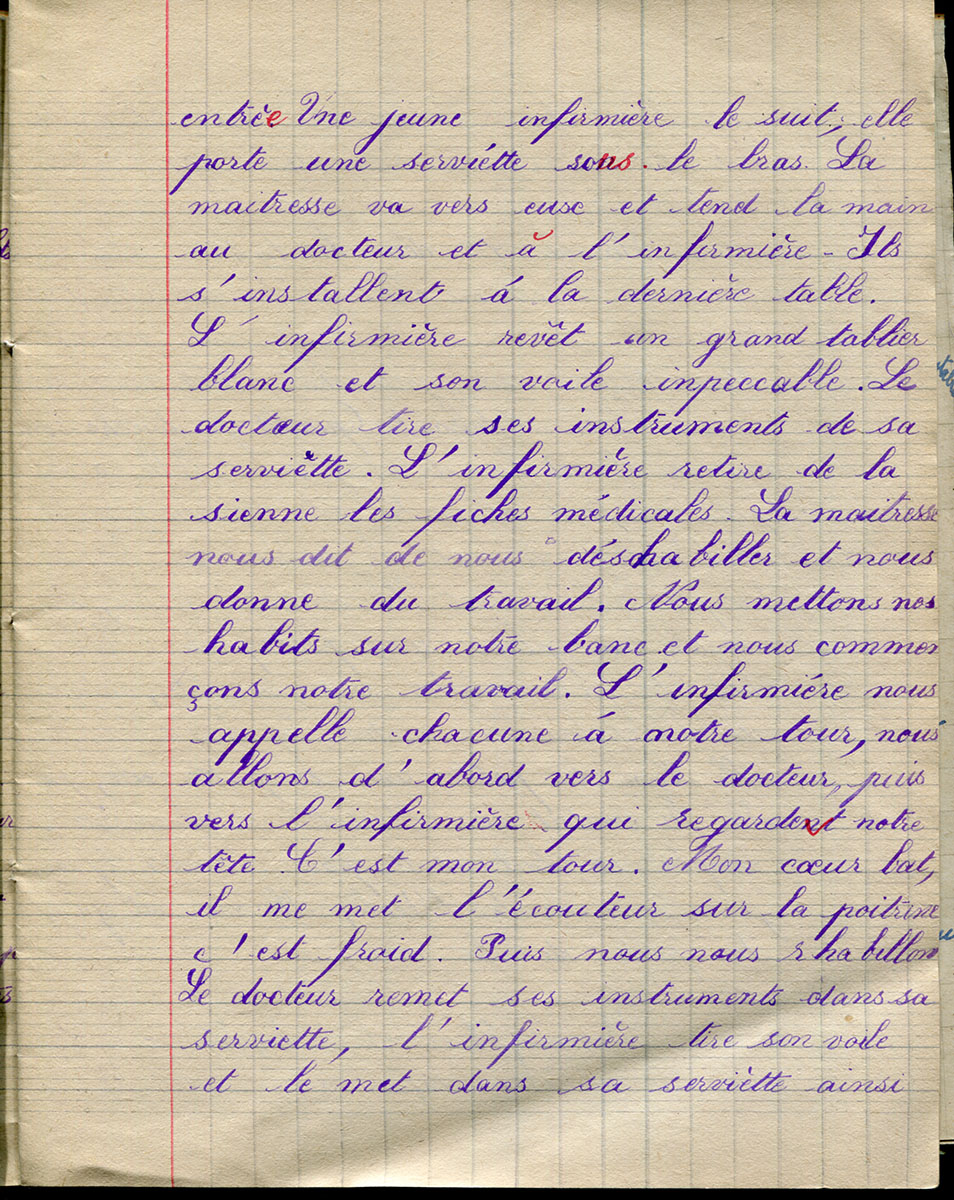 entrée Une jeune infirmière le suit, elle
porte une serviétte sous le bras. La
maitresse va vers euse et tend la main
au docteur et à l'infirmière - Ils
s'installent á la dernière table.
L'infirmière revêt un grand tablier
blanc et son voile inpeccable. Le
docteur tire ses instruments de sa
serviètte. L'infirmière retire de la
sienne les fiches médicales. La maitresse
nous dit de nous déshabiller et nous
donne du travail. Nous mettons nos
habits sur notre banc et nous commen
çons notre travail. L'infirmiére nous
appelle chacune á notre tour, nous
allons d'abord vers le docteur, puis
vers l'infirmière qui regardent notre
tête C'est mon tour. Mon cœur bat,
il me met l'écouteur sur la poitrine
c'est froid. Puis nous nous rhabillon
Le docteur remet ses instruments dans sa
serviette, l'infirmière tire son voile
et le met dans sa serviètte ainsi